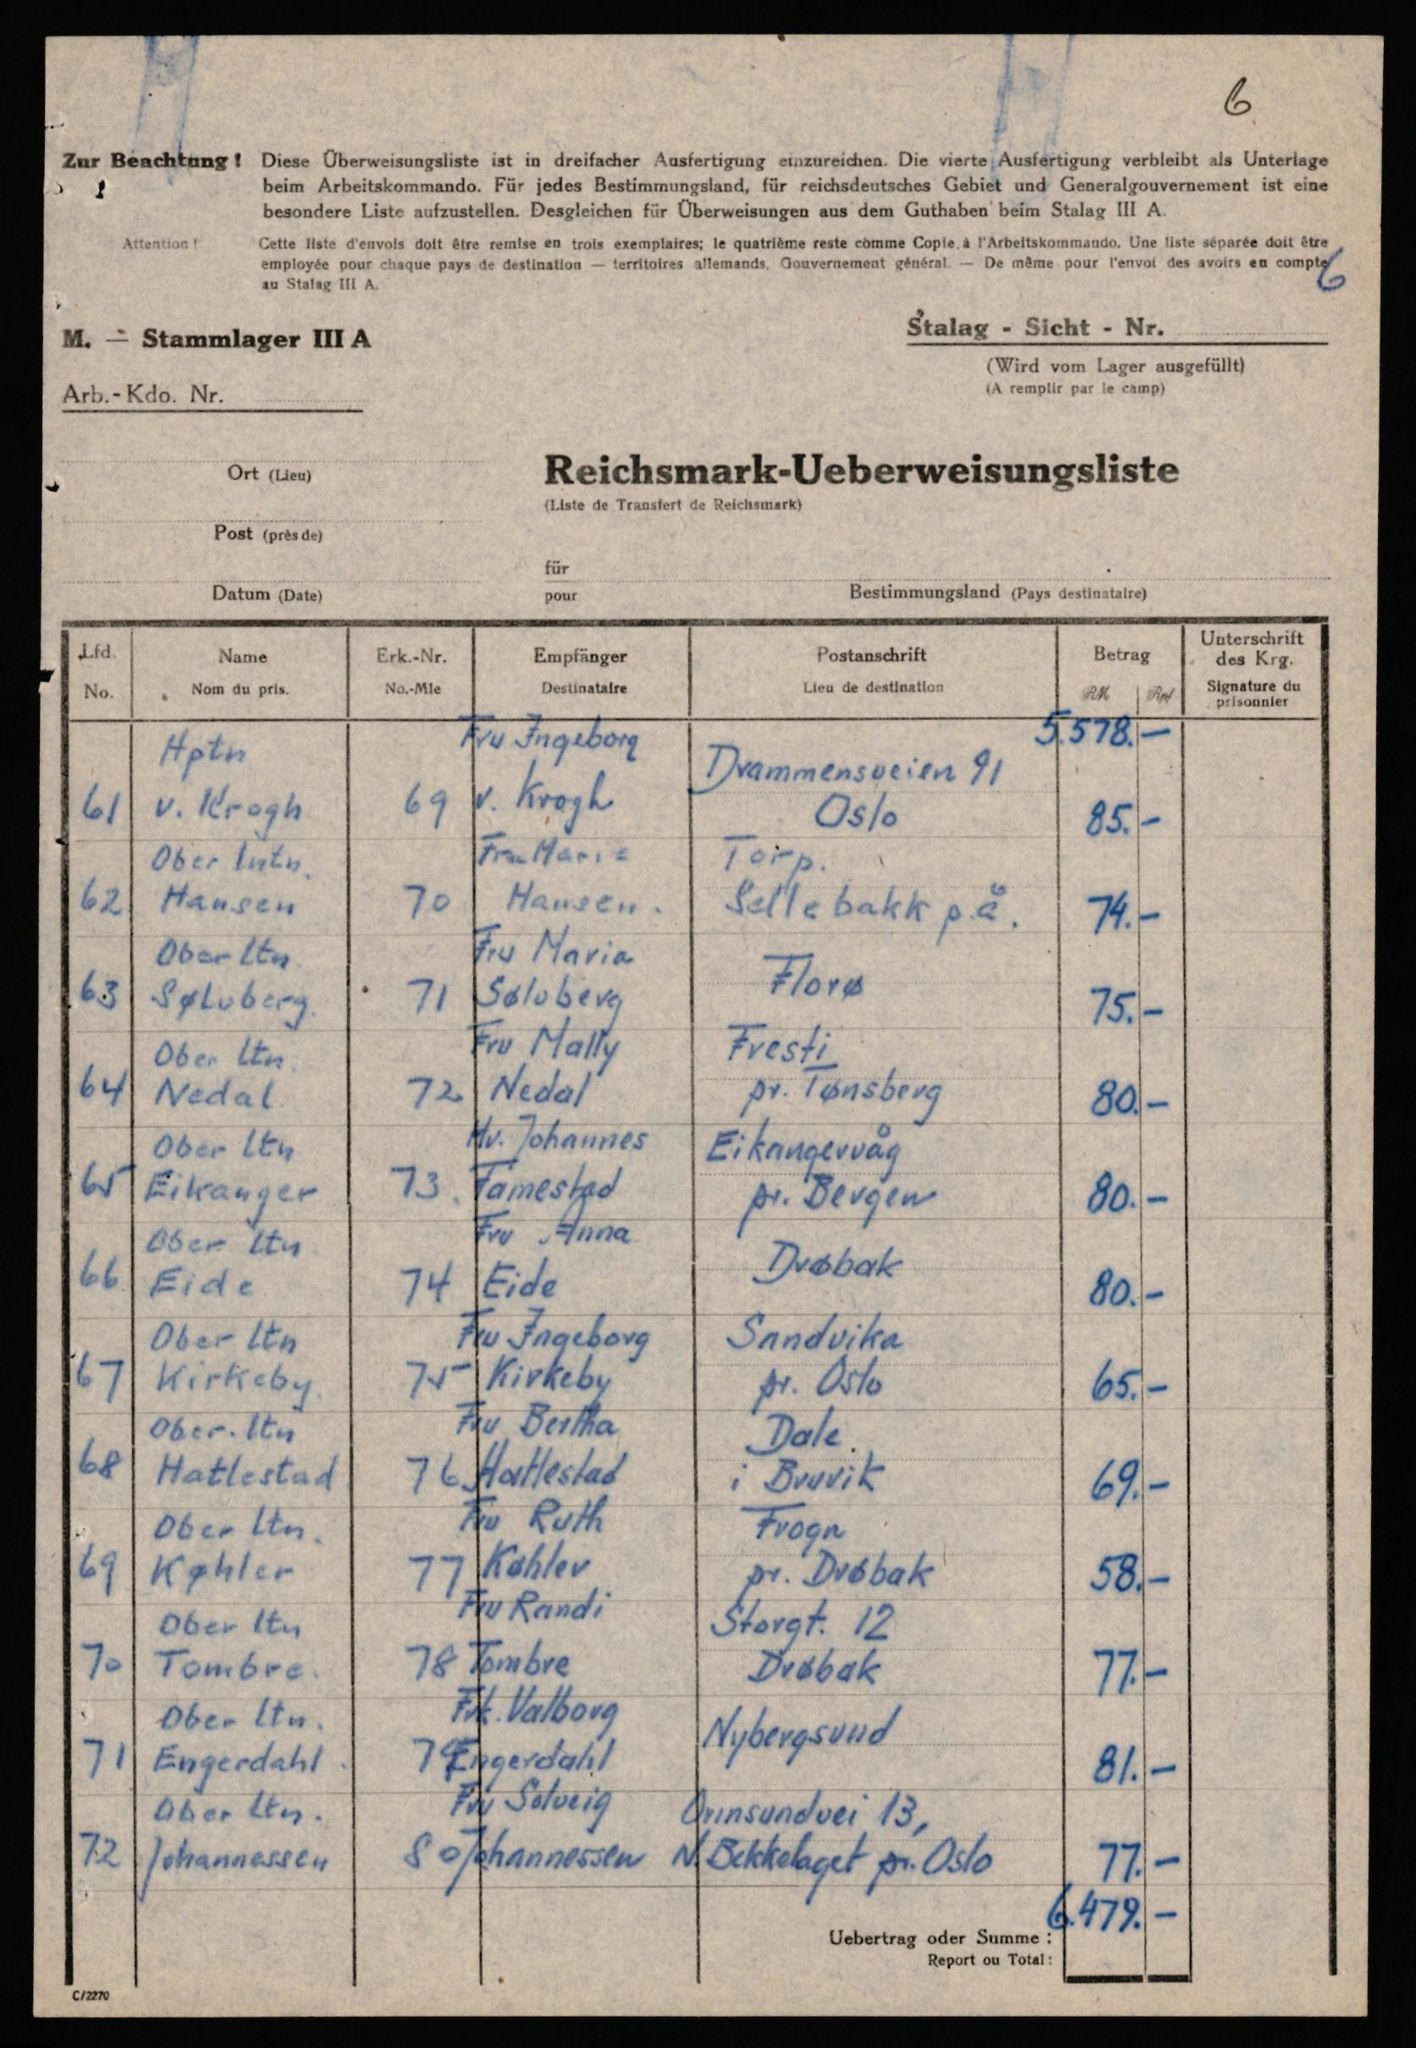 6
Zur Beachtung ! Diese Überweisungsliste ist in dreifacher Ausfertigung einzureichen. Die vierte Ausfertigung verbleibt als Unterlage
beim Arbeitskommando. Für jedes Bestimmungsland, für reichsdeutsches Gebiet und Generalgouvernement ist eine
besondere Liste aufzustellen. Desgleichen für Überweisungen aus dem Guthaben beim Stalag III A.
Attention ! Cette liste d'envois doit être remise en trois exemplaires; le quatrième reste comme Copie à l'Arbeitskommando. Une liste séparée doit être
employée pour chaque pays de destination — territoires allemands, Gouvernement général. — De même pour l'envoi des avoirs en compte
au Stalag III A.
6
M. - Stammlager III A
Stalag - Sicht - Nr.
(Wird vom Lager ausgefüllt)
(A remplir par le camp)
Arb.-Kdo. Nr.
Ort (Lieu)
Reichsmark-Ueberweisungsliste
(Liste de Transfert de Reichsmark)
Post (près de)
für
pour
Datum (Date)
Bestimmungsland (Pays destinataire)
Lfd. Name Erk.-Nr. Empfänger Postanschrift Betrag Unterschrift des Krg.
No. Nom du pris. No.-Mle Destinataire Lieu de destination RM Rpf Signature du prisonnier
5.578.—
Hptn Fru Ingeborg Drammensveien 91
61 v. Krogh 69 v. Krogh Oslo 85.—
Ober lntn. Fru Marie Torp.
62 Hansen 70 Hansen. Sellebakk p.å. 74.—
Ober ltn Fru Maria
63 Sølvberg. 71 Sølvberg Florø 75.—
Ober ltn. Fru Mally Fresti
64 Nedal 72 Nedal pr. Tønsberg 80.—
Ober ltn Hr. Johannes Eikangervåg
65 Eikanger 73. Famestad pr. Bergen 80.—
Ober ltn Fru Anna
66 Eide 74 Eide Drøbak 80.—
Ober ltn Fru Ingeborg Sandvika
67 Kirkeby 75 Kirkeby pr. Oslo 65.—
Ober. ltn Fru Bertha Dale.
68 Hatlestad 76 Hatlestad i Bruvik 69.—
Ober ltn. Fru Ruth Frogn
69 Køhler 77 Køhler pr. Drøbak 58.—
Ober ltn Fru Randi Storgt. 12
70 Tombre. 78 Tombre Drøbak 77.—
Ober ltn. Frk. Valborg
71 Engerdahl 79 Engerdahl Nybergsund 81.—
Ober ltn. Fru Solveig Ormsundvei 13,
72 Johannessen 80 Johannessen N Bekkelaget pr. Oslo 77.—
6.479.—
Uebertrag oder Summe :
Report ou Total :
C/2270